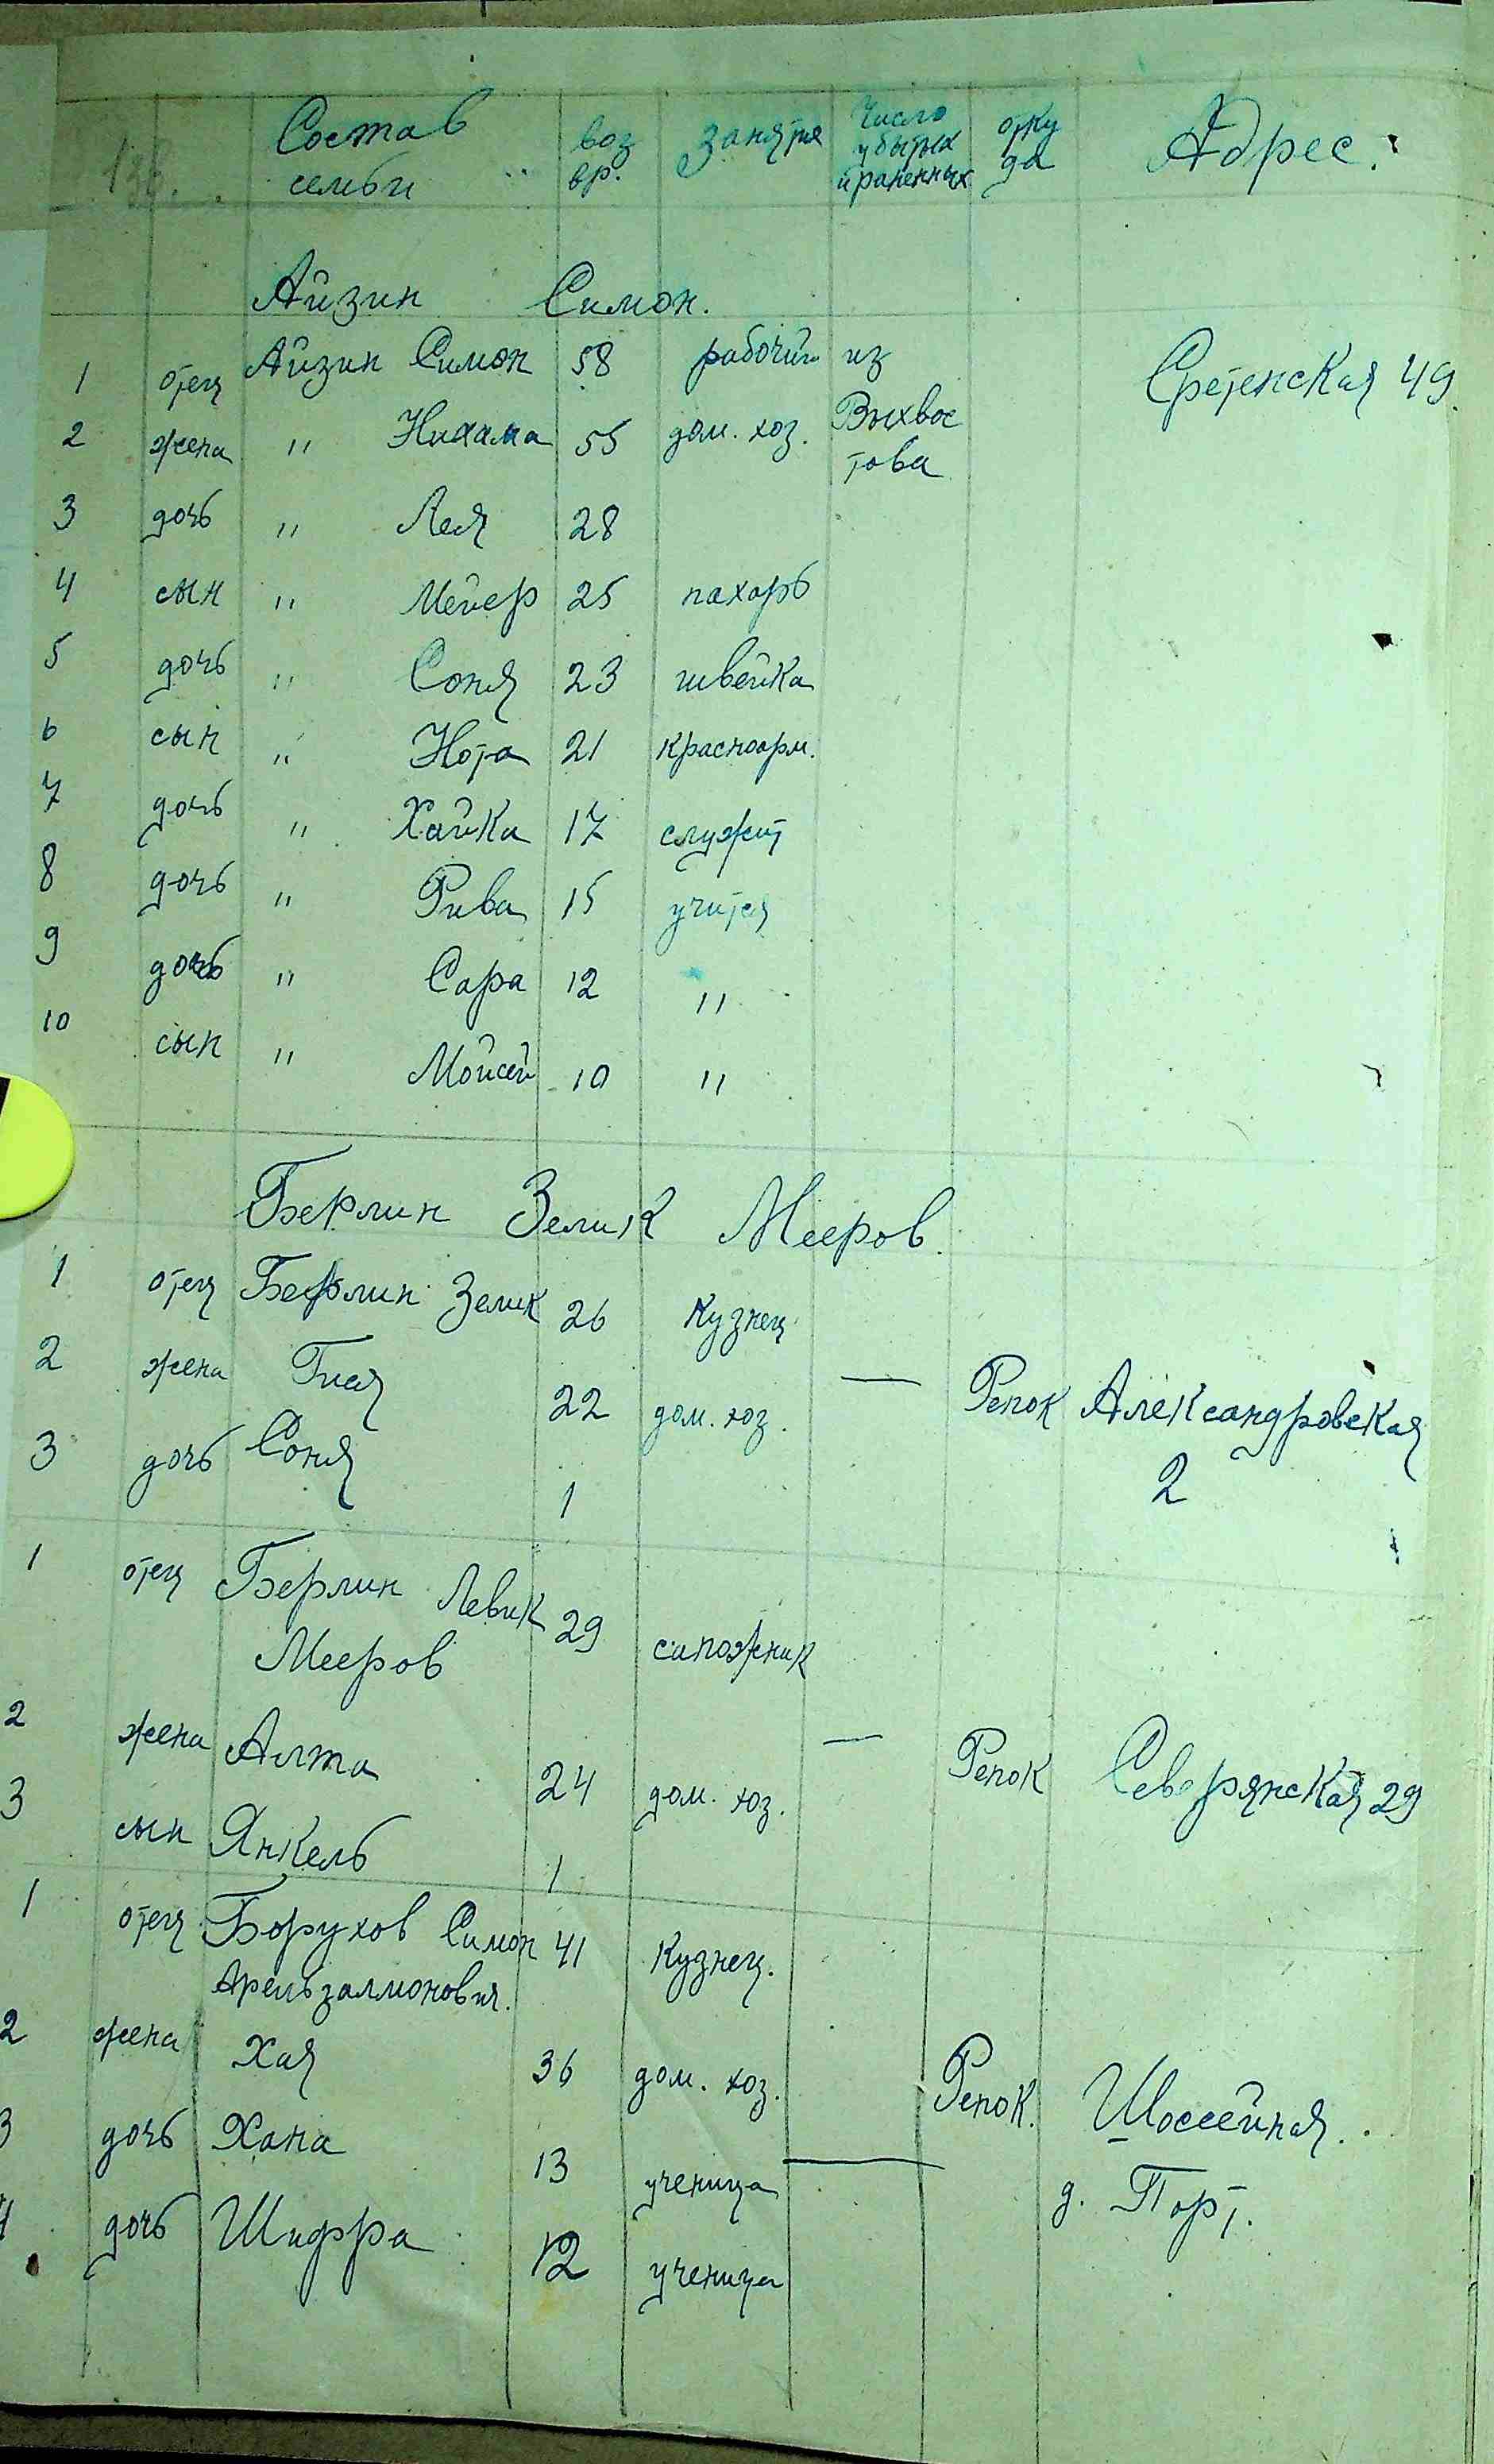 Состав семьи возвр. Занятия Число убытых и раненных откуда Адрес:
Айзин Симон.
1 отец Айзин Симон 58 рабочий из Сретенская 49.
2 жена " Нихама 55 дом. хоз. Выхвос
това
3 дочь " Лея 28
4 сын " Мейер 25 пахарь
5 дочь " Соня 23 швейка
6 сын " Нота 21 красноарм.
7 дочь " Хайка 17 служит
8 дочь " Рива 15 учится
9 дочь " Сара 12 "
10 сын " Мойсей 10 "
Берлин Зелик Мееров.
1 отец Берлин Зелик 26 кузнец
2 жена Гися 22 дом. хоз. — Репок Александровская
3 дочь Соня 1 2
1 отец Берлин Левик 29 сапожник
Мееров
2 жена Алта 24 дом. хоз. — Репок Северянская 29
3 сын Янкель 1
1 отец Борухов Симон 41 кузнец.
Арельзалмонович.
2 жена Хая 36 дом. хоз. Репок. Шоссейная.
3 дочь Хана 13 ученица — д. Порт.
4 дочь Шифра 12 ученица